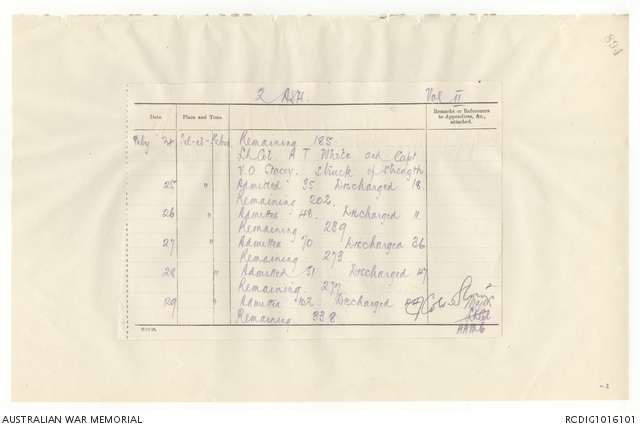 2 ASH. Vol II
Date. Place and Time Remarks or References to Appendices, &c., attached.
Feby 24 Tel-el-Kebir Remaining 185
Lt Col. A T White and Capt
V.O Stacey. Struck of Strength
25 " Admitted 35 Discharged 18.
Remaining 202.
26 " Admitted 48. Discharged 11
Remaining 239
27 " Admitted 70 Discharged 36
Remaining 273
28 " Admitted 51 Discharged 47
Remaining. 277
29 " Admitted 102 Discharged
Remaining 338
AAMC
AUSTRALIAN WAR MEMORIAL
RCDIG1016101